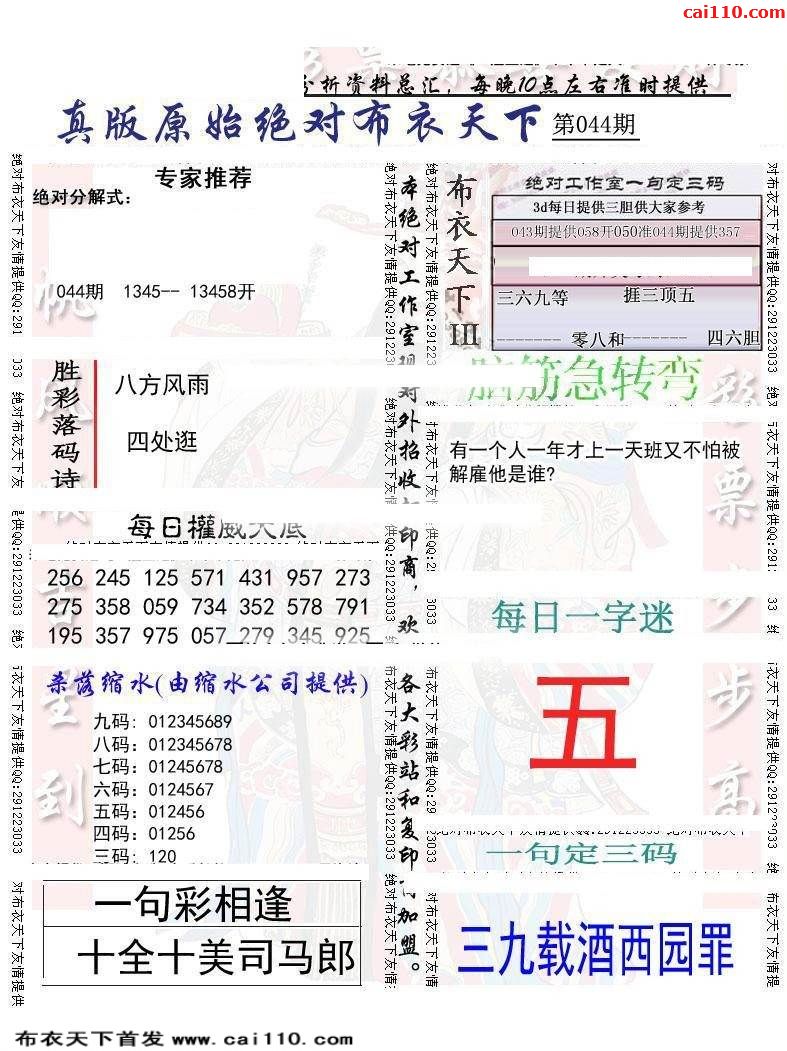 cai110.com
分析资料总汇，每晚10点左右准时提供
真版原始绝对布衣天下 第044期
专家推荐
绝对分解式：
044期 1345-- 13458开
胜彩落码诗
八方风雨
四处逛
每日權威大底
256 245 125 571 431 957 273
275 358 059 734 352 578 791
195 357 975 057 279 345 925
杀落缩水(由缩水公司提供)
九码: 012345689
八码: 012345678
七码: 01245678
六码: 0124567
五码: 012456
四码: 01256
三码: 120
一句彩相逢
十全十美司马郎
本绝对工作室
对外招收
印商，欢
各大彩站和复印
加盟。
布衣天下III
绝对工作室一句定三码
3d每日提供三胆供大家参考
043期提供058开050准044期提供357
三六九等 捱三顶五
-------- 零八和------- 四六胆
脑筋急转弯
有一个人一年才上一天班又不怕被
解雇他是谁?
每日一字迷
五
一句定三码
三九载酒西园罪
彩票步步高
绝对布衣天下友情提供QQ:291223033
布衣天下首发 www.cai110.com